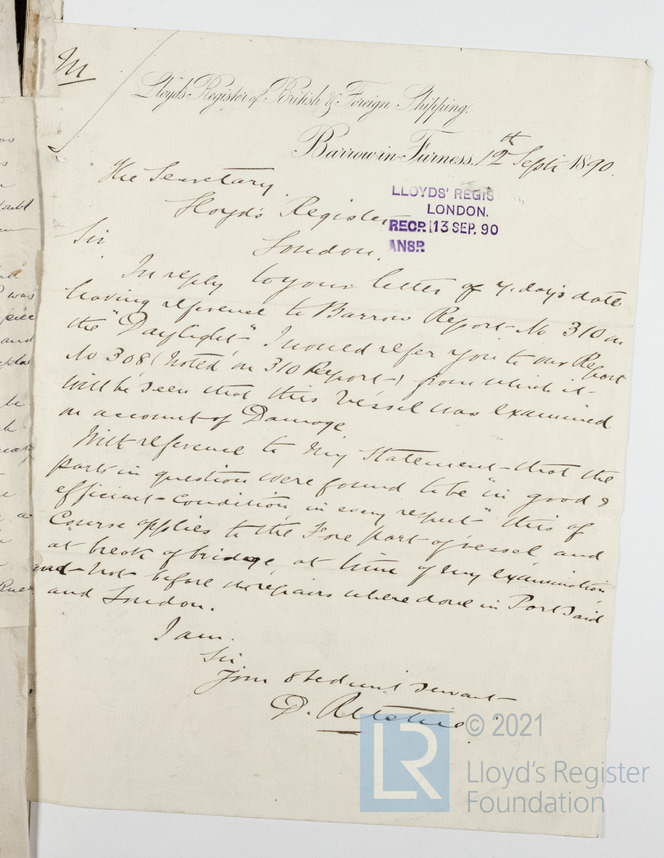 Lloyd's Register of British & Foreign Shipping.
Barrow-in-Furness. 12th Sept 1890.
The Secretary
Lloyd's Register
London.
LLOYDS' REGIS
LONDON.
RECD. 13 SEP. 90
ANSD.
Sir
In reply to your letter of y'day's date
having reference to Barrow Report No 310 on
the "Daylight" I would refer you to our Report
No 308 (noted on 310 Report) from which it
will be seen that this Vessel was examined
on account of Damage
With reference to my Statement that the
parts in question were found to be "in good &
efficient condition in every respect" this of
Course applies to the Fore part of vessel and
at break of bridge, at time of my examination
and not before the repairs where done in Port Said
and London.
I am.
Sir
Your obedient servant
D. Ritchie
© 2021
LR
Lloyd's Register
Foundation